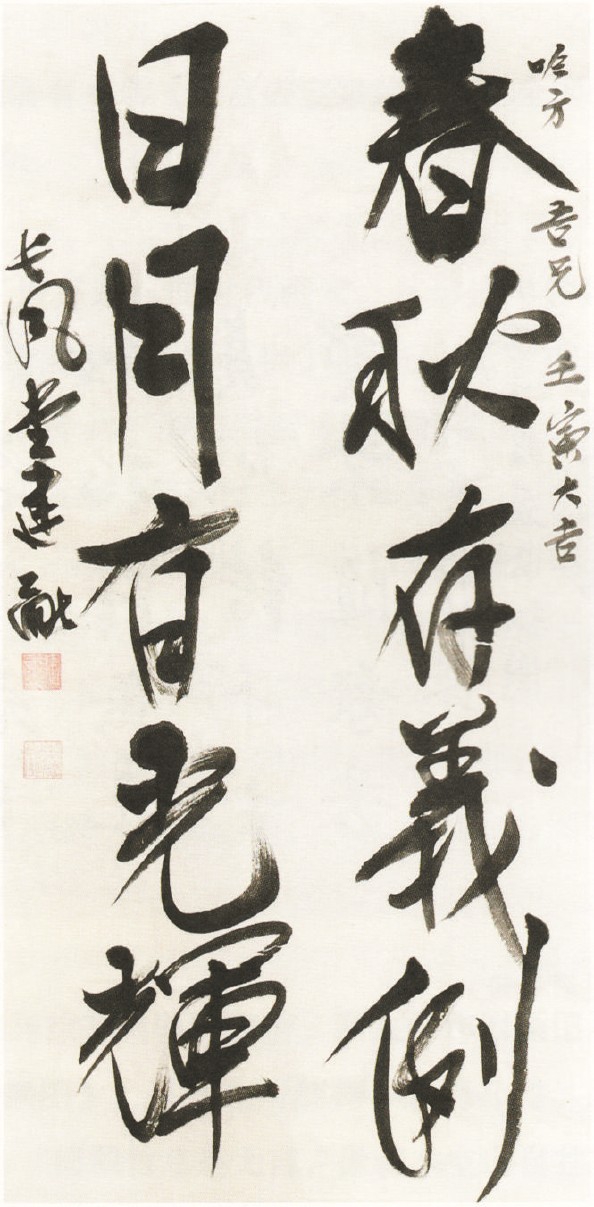 吟方 吾兄 壬寅大吉
春秋存義例
日月有光輝
長風堂建融